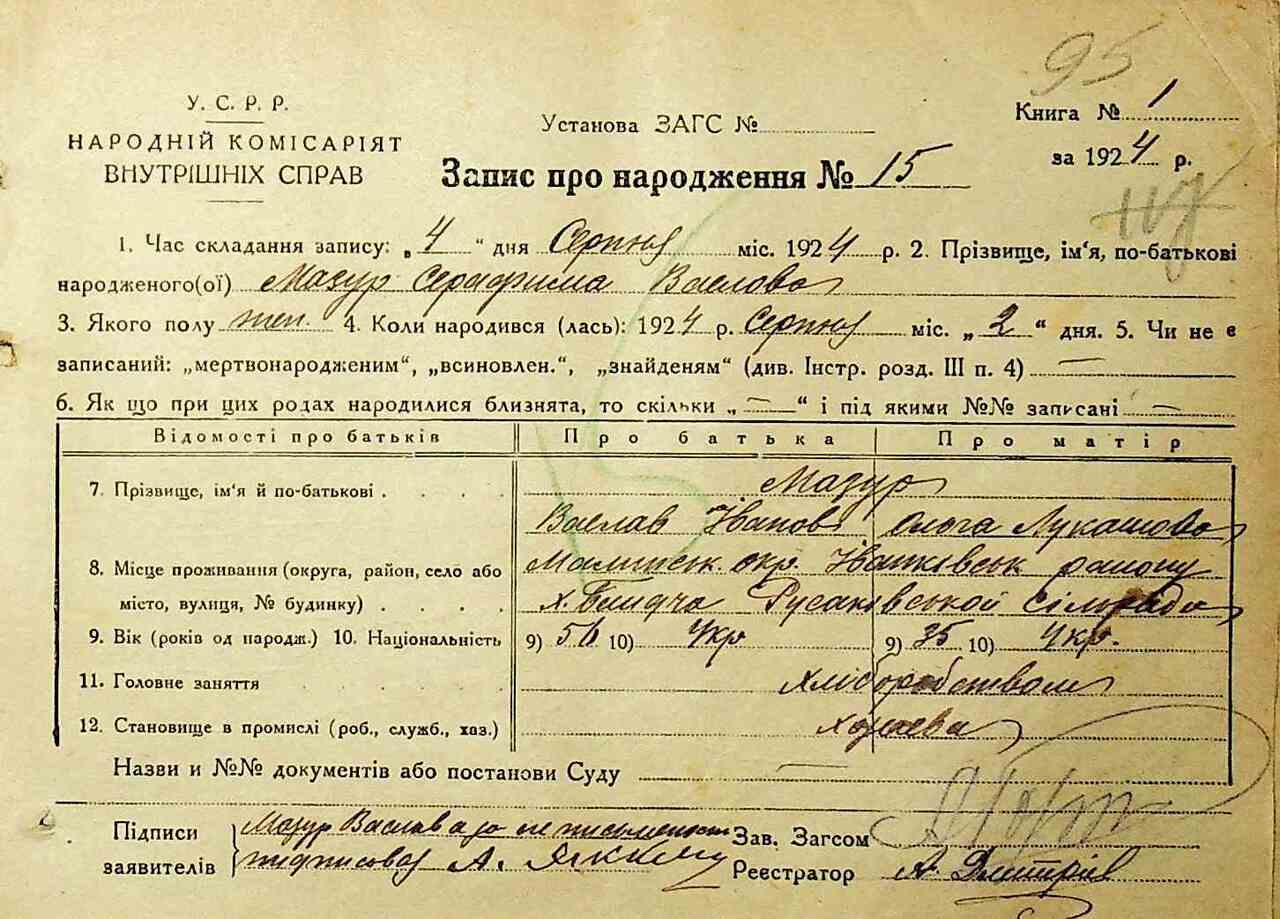 95
У. С. Р. Р.
НАРОДНІЙ КОМІСАРІЯТ
ВНУТРІШНІХ СПРАВ
Установа ЗАГС №
Книга № 1
за 1924 р.
Запис про народження № 15
1. Час складання запису: „4“ дня Серпня міс. 1924 р. 2. Прізвище, ім‘я, по-батькові
народженого(ої) Мазур Серафима Васлова
3. Якого полу жен. 4. Коли народився (лась): 1924 р. Серпня міс. „2“ дня. 5. Чи не є
записаний: „мертвонародженим“, „всиновлен.“, „знайденям“ (див. Інстр. розд. III п. 4) —
6. Як що при цих родах народилися близнята, то скільки „—“ і під якими №№ записані —
Відомості про батьків Про батька Про матір
7. Прізвище, ім‘я й по-батькові Мазур
Васлав Іванов Ольга Лукашова
8. Місце проживання (округа, район, село або Малинськ. окр. Іванківськ району
місто, вулиця, № будинку) х. Блидча Русаківської Сільради
9. Вік (років од народж.) 10. Національність 9) 56 10) Укр 9) 35 10) Укр.
11. Головне заняття Хліборобством
12. Становище в промислі (роб., служб., хаз.) Хазяева
Назви и №№ документів або постанови Суду —
Підписи Мазур Васлав а за не письменост Зав. Загсом
заявителів підписовал А. Реєстратор А. Дмитрів